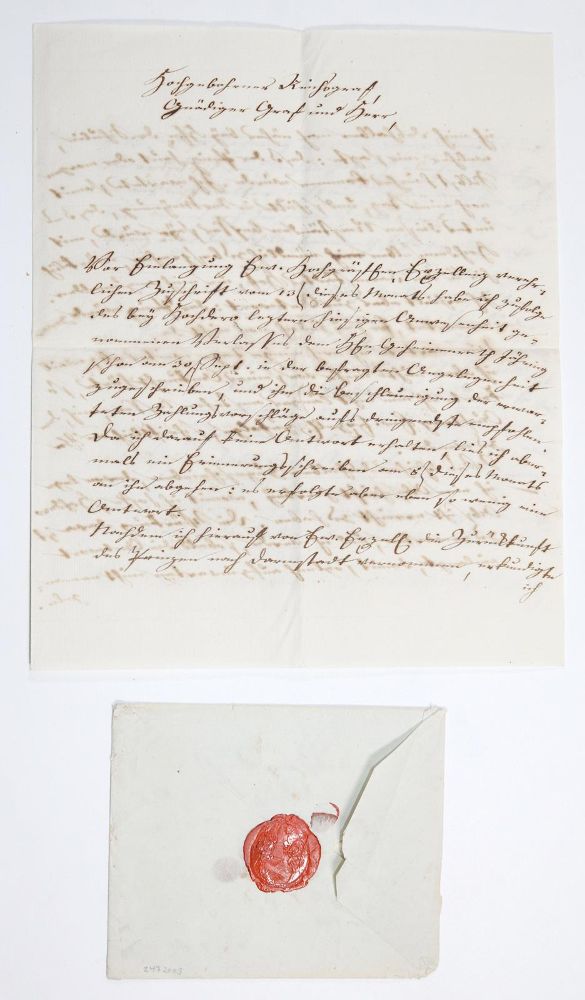 Hochgebohrner Reichsgraf,
Gnädiger Graf und Herr,
Vor Einlangung Ew. Hochgräflichen Exzellenz verehr-
lichen Zuschrift vom 13 dieses Monats habe ich zufolge
des bey Hochdero letzten hiesigen Anwesenheit ge-
nommenen Verlasses dem Geheimerath
schon am 30 Sept. in der befragten Angelegenheit
zugeschrieben, und ihm die Beschleunigung der erwar-
teten Zahlungsvorschläge aufs dringendste empfohlen.
Da ich darauf keine Antwort erhalten, ließ ich aber-
mals ein Erinnerungsschreiben am 8 dieses Monats
an ihn abgehen: es erfolgte aber eben so wenig eine
Antwort.
Nachdem ich hierauf von Ew. Exzell. die Zurückkunft
des Prinzen nach Darmstadt vernommen, erkundigte
ich